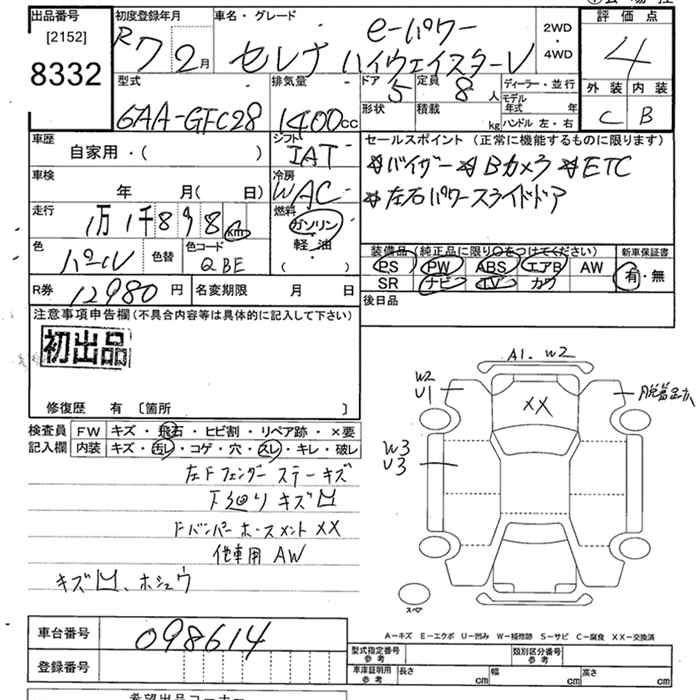 出品番号
[2152]
8332
初度登録年月
R7 2月
車名・グレード
e-パワー
セレナ ハイウェイスターV
2WD
・
4WD
評価点
4
外装 内装
C B
型式
6AA-GFC28
排気量
1400cc
ドア
5
定員
8人
形状
積載
kg
ディーラー・並行
モデル年式 年
ハンドル 左・右
車歴
自家用・( )
シフト
IAT
車検
年 月( 日)
冷房
WAC
走行
1万1千898km
燃料
ガソリン
・
軽油
( )
色
パール
色替
色コード
QBE
R券 12980円
名変期限 月 日
セールスポイント (正常に機能するものに限ります)
☆バイザー ☆Bカメラ ☆ETC
☆左右パワースライドドア
装備品 (純正品に限り○をつけてください)
PS PW ABS エアB AW
SR ナビ TV カワ
新車保証書
有・無
後日品
注意事項申告欄(不具合内容等は具体的に記入して下さい)
初出品
修復歴 有 〔箇所 〕
検査員記入欄
FW キズ・飛石・ヒビ割・リペア跡・×要
内装 キズ・汚レ・コゲ・穴・スレ・キレ・破レ
左Fフェンダー ステーキズ
下廻りキズ凹
Fバンパーホースメント XX
他車用 AW
キズ凹、ホシュウ
A1. W2
W2
U1
XX
脱着足付
W3
U3
スペア
A−キズ E−エクボ U−凹み W−補修跡 S−サビ C−腐食 XX−交換済
車台番号
098614
登録番号
型式指定番号
参考
類別区分番号
参考
車庫証明用
参考
長さ cm
幅 cm
高さ cm
希望出品コーナー